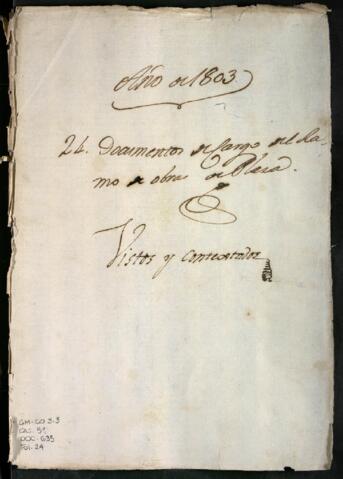 Año de 1803
24. Documentos de Cargo del Ra-
mo de obras de Plaza.
Vistos y Contextados
GM-CO 3-3
CAJ. 51
DOC. 635
FOL. 24